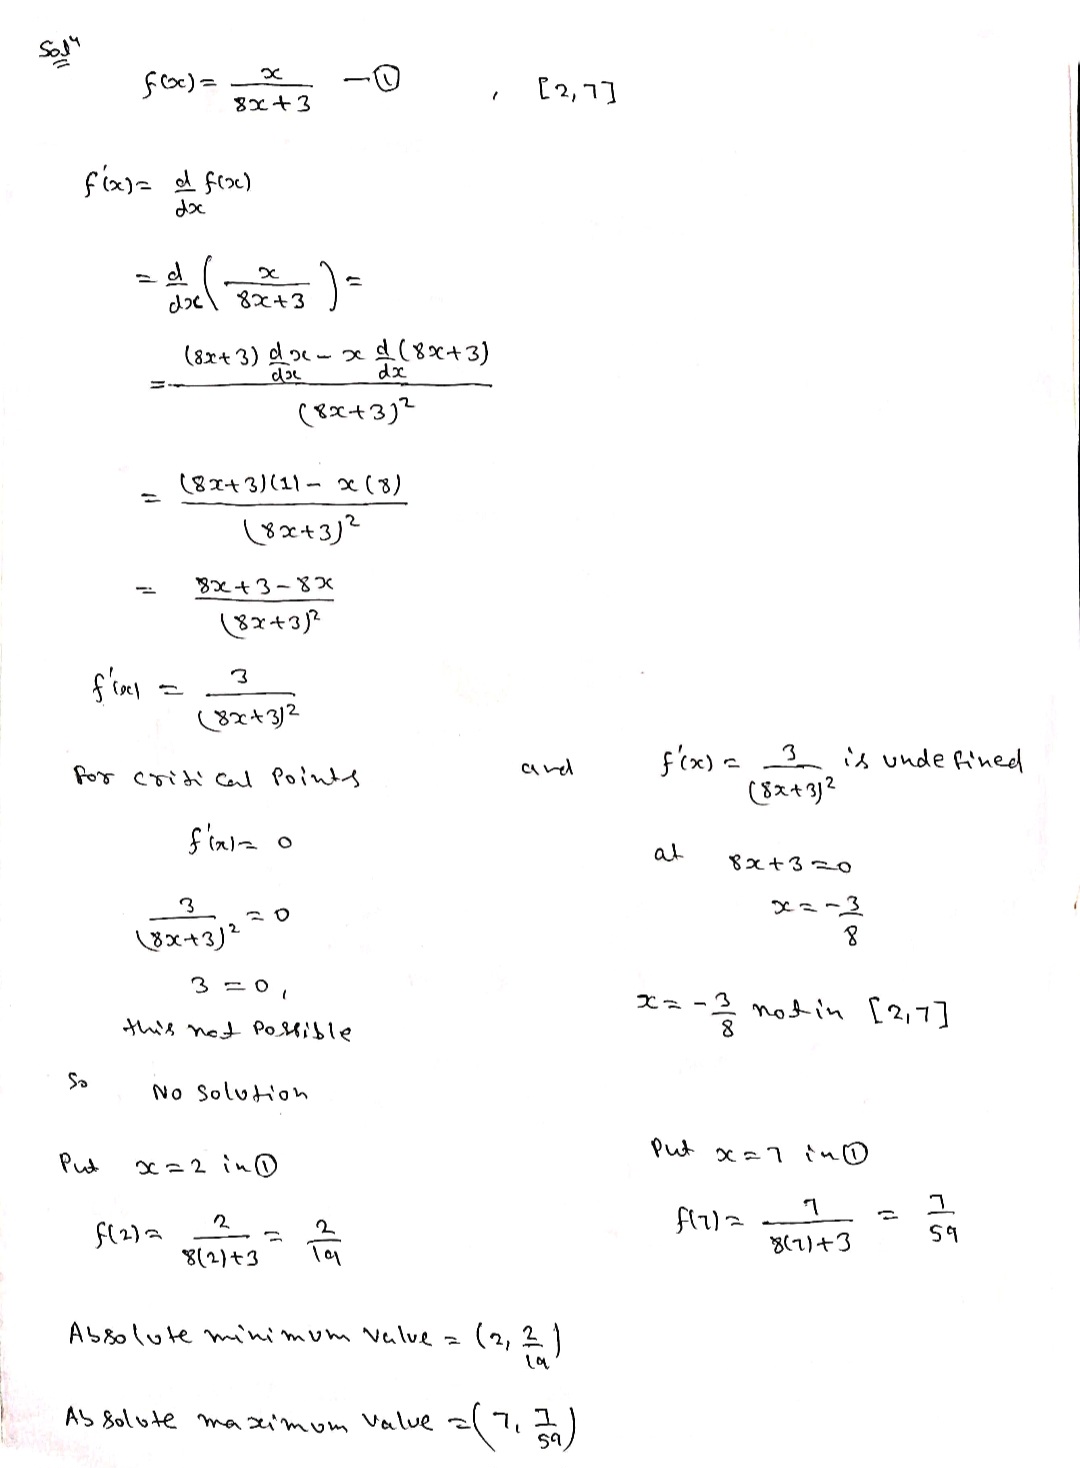 Solⁿ
f(x) = x/(8x+3) —① , [2,7]
f'(x) = d/dx f(x)
= d/dx (x/(8x+3)) =
= ((8x+3) d/dx x − x d/dx (8x+3))/(8x+3)²
= ((8x+3)(1) − x(8))/(8x+3)²
= (8x+3−8x)/(8x+3)²
f'(x) = 3/(8x+3)²
for critical points
f'(x) = 0
3/(8x+3)² = 0
3 = 0,
this not possible
So No solution
and f'(x) = 3/(8x+3)² is undefined
at 8x+3=0
x = −3/8
x = −3/8 not in [2,7]
Put x=2 in ①
f(2) = 2/(8(2)+3) = 2/19
Put x=7 in ①
f(7) = 7/(8(7)+3) = 7/59
Absolute minimum value = (2, 2/19)
Absolute maximum value = (7, 7/59)